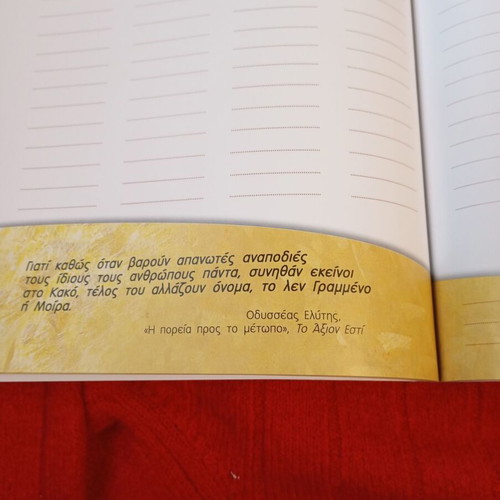 Γιατί καθώς όταν βαρούν απανωτές αναποδιές
τους ίδιους τους ανθρώπους πάντα, συνηθάν εκείνοι
στο Κακό, τέλος του αλλάζουν όνομα, το λεν Γραμμένο
ή Μοίρα.
Οδυσσέας Ελύτης,
«Η πορεία προς το μέτωπο», Το Άξιον Εστί